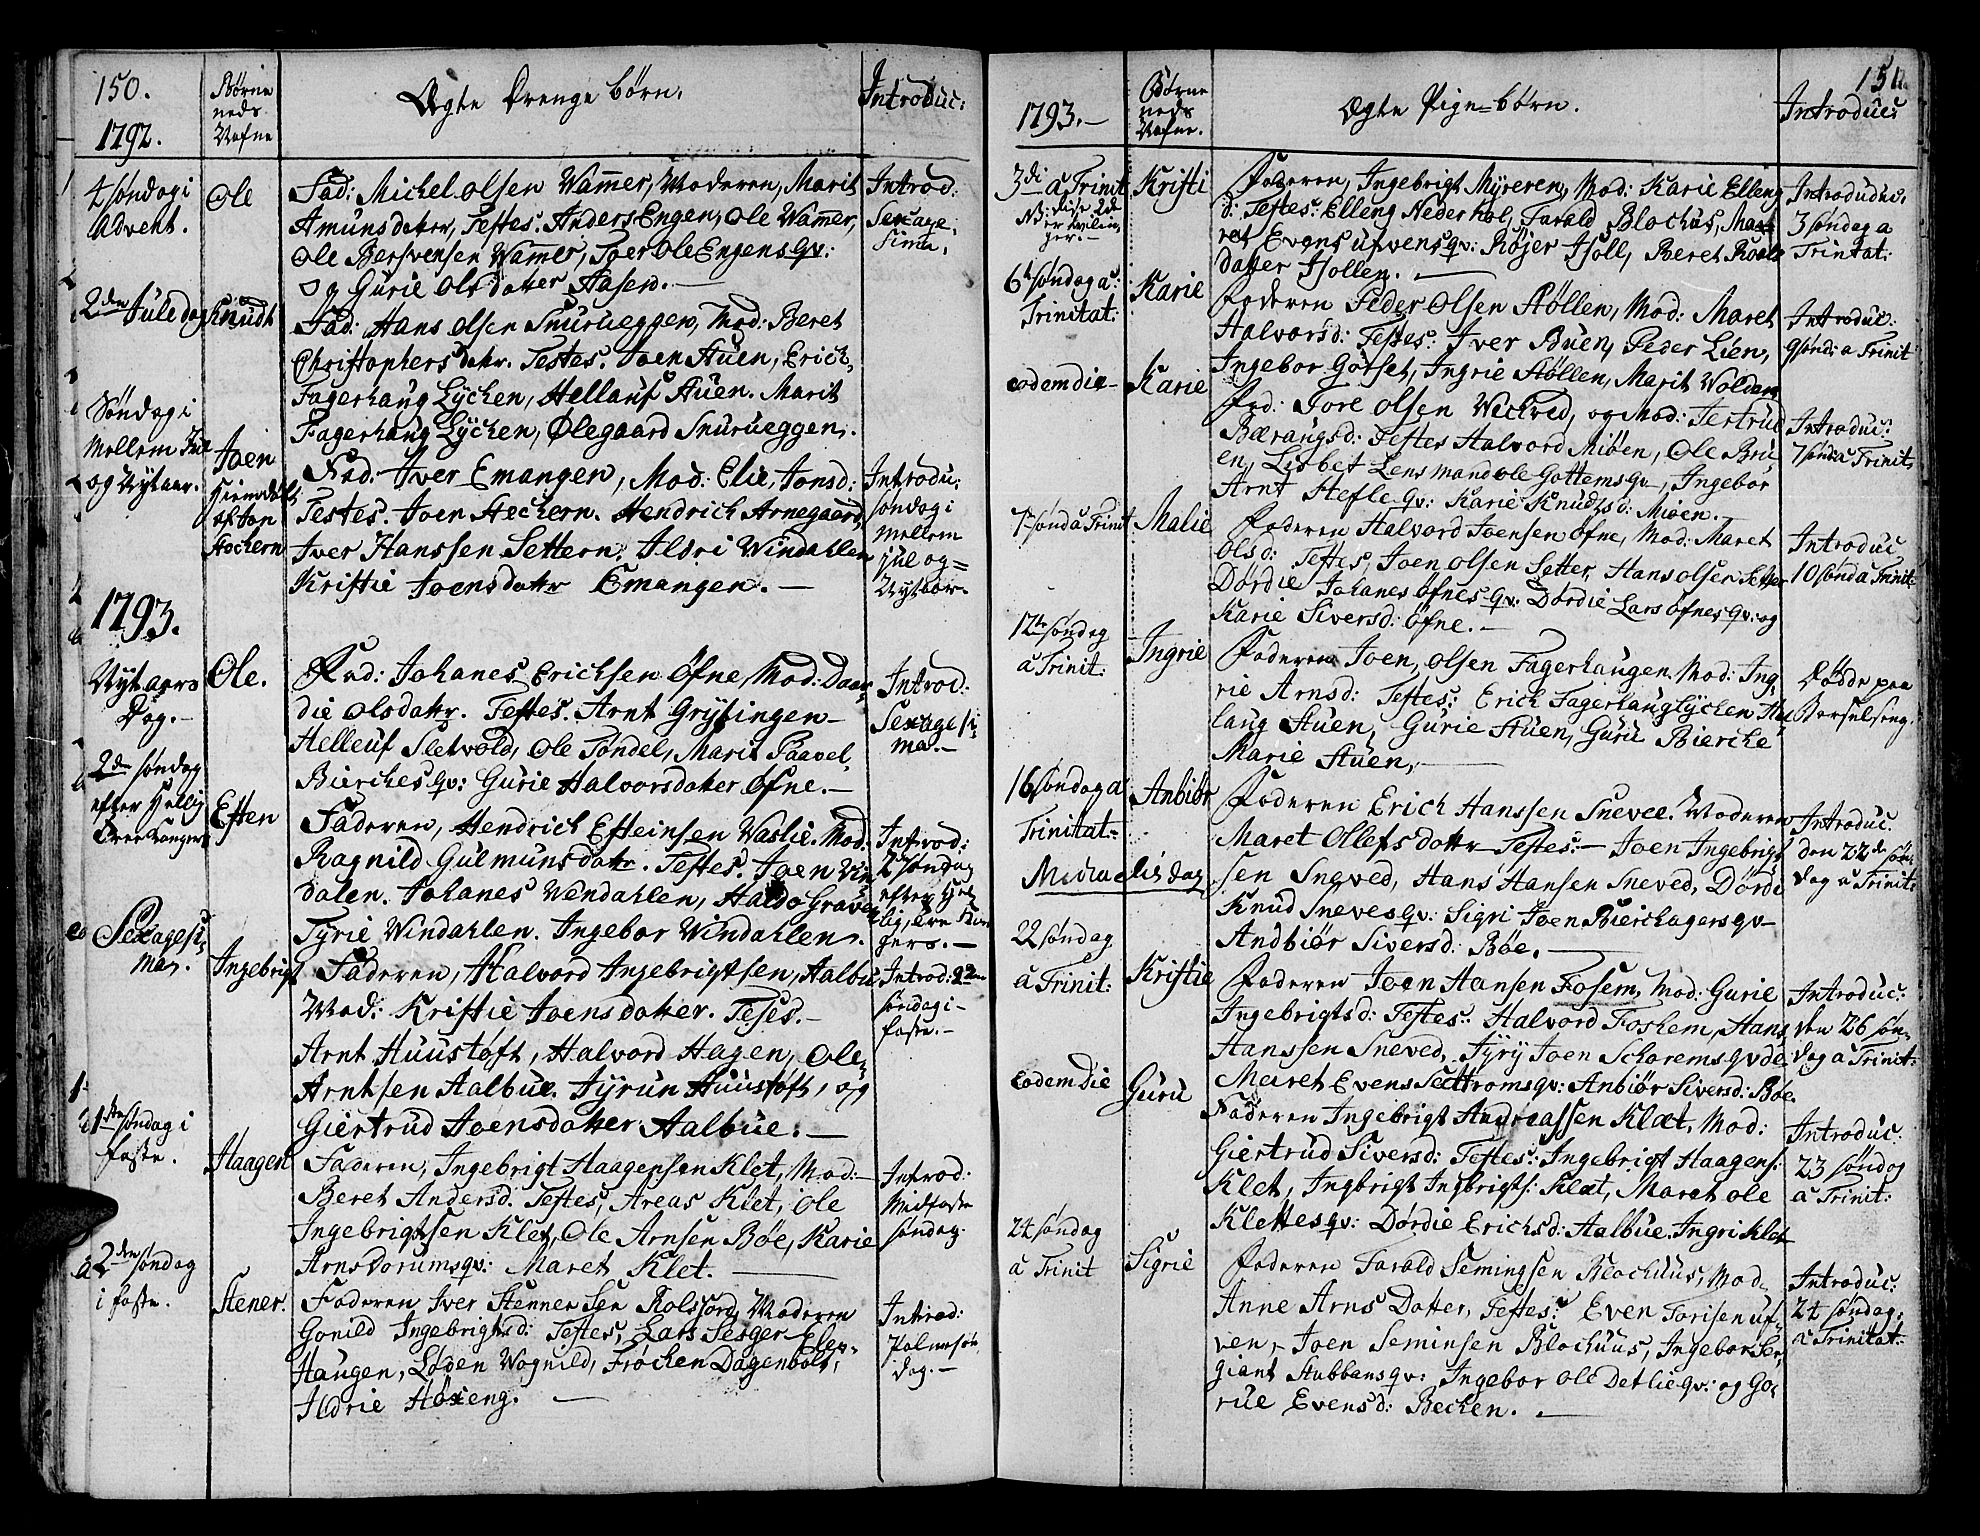 150.
1792.
Børne
neds
Nafne
Ægte Drenge børn.
Introduc:
4 søndag i
Advent.
Ole
Fad: Michel olsen Wamer, Moderen, Marit
Amunsdatter, Testes. Anders Engen, Ole Wamer,
Ole Bersvensen Wamer, Toer Ole Engens qv:
og Gurie Olsdatter Aasen.
Introd:
Sexage
sima.
2den Juledag
Knudt
Fad: Hans Olsen Snurueggen, Mod: Beret
Christophersdattr. Testes. Joen Stuen, Erich
Fagerhaug Lÿcken, Hellauf Stuen. Marit
Fagerhaug Lÿchen, Ølegaard Snurueggen.
Søndag i
mellem Jul
og Nytaar.
Joen
af Jon
Hochern
Fad: Iver Emangen, Mod: Elie Jonsd:
Testes. Joen Hechern. Hendrich Arnegaard,
Iver Hanssen Settern. Ildri Windahlen
Kristie Joensdattr Emangen. —
Introdu:
søndag i
mellem
jul og=
Nytaar.
1793.
Nytaars
Dag.—
Ole.
Fad: Johanes Erichsen Øfne, Mod: Daar
die olsdattr. Testes. Arnt Grÿtingen—
Helleuf Sletvold, Ole Tøndel, Marit Paavel
Bierches qv: Gurie Halvorsdatter Øfne.—
Introd:
Sexagesi
ma.—
2den søndag
efter Hellig
Tree Konger
Esten
Faderen, Hendrich Esteinsen Waslie. Mod.
Ragnild Gulmunsdattr. Testes. Joen Vin
dalen. Johanes Windahlen, Haldo Graven
Tyrie Windahlen. Ingebor Windahlen.
Introd:
2 søndag
efter Hel
lig tre Kon
gers.—
Sexagesi
ma.
Ingebrigt
Faderen, Halvord Ingebrigtsen, Aalbu
Mod: Kristie Joensdatter. Tests.—
Arnt Huustøft, Halvord Hagen, Ole
Arntsen Aalbue. Tyrun Huustøft, og
Giertrud Joensdatter Aalbue.—
Introd: 2den
søndag i
faste.—
1ste søndag i
faste.
Haagen
Faderen, Ingebrigt Haagensen Klet, Mod:
Beret Andersd. Testes, Areas Klet, Ole
Ingebrigtsen Klet, Ole Arnsen Bøe, Karie
Arns Dorums qv: Maret Klet.
Introd:
Midfaste
søndag.
2den søndag
i faste.
Stener.
Faderen Iver Stennersen Rolssord, Moderen
Gonild Ingebrigtsd: Testes, Lars Sesger Elen
Haugen, Løden Wognild, Frøchen Dagenbolt,
Ildrie Høxeng. —
Introd:
Palmesøn
dag.—
151.
1793.—
Børne
neds
Nafne.
Ægte Pige=børn.
Introduc:
3di a Trinit
Kristi
Faderen, Ingebrigt Mÿreren, Mod: Karie Elleng
d: Testes: Elleng Nederhol, Farald Blochus, Mar
ret Evens ufvens qv: Røjer Isoll, Beret Roals
datter Isollen.
Introducuc:
3 søndag a
Trinitat:
6te søndag a:
Trinitat:
Karie
Faderen Peder Olsen Støllen, Mod: Maret
Halvorsd: Testes: Iver Buen, Peder Lien,
Ingebor Gorset, Ingrie Støllen, Marit Wolden
Introduc:
9 sønd: a Trinit
eodem die—
Karie
Fad: Tore Olsen Weckved, og Mod: Jertrud
Bærangsd: Testes Halvord Miøen, Ole Bru
en, Lisbet Lensmand ole Gottems qv, Ingebor
Arnt Hefle qv: Karie Knudtsd: Miøen.—
Introduc:
7 sønd a Trinit.
7 sønd a Trinit
Malie
Faderen Halvord Joensen Øfne, Mod: Maret
olsd: Testes, Joen olsen Setter, Hans olsen Setter
Dørdie Johanes Øfnes qv: Dørdie Lars Øfnes qv: og
Karie Siversd: Øfne.—
Introduc
10 sønd a Trinit
12te søndag
a Trinit:
Ingrie
Faderen Joen Olsen Fagerhaugen Mod: Ing
rie Arnsd: Testes: Erich Fagerhaug Lÿchen Hel
laug Stuen, Gurie Stuen, Guru Bierche
Marie Stuen,
Døde paa
Barselseng.
16 søndag a
Trinitat=
Michaelis dag
Anbiør
Faderen Erich Hanssen Snevee. Moderen
Maret Ollefsdattr Testes:— Joen Ingebrigt
sen Sneved, Hans Hansen Sneved, Dørdi
Knud Sneves qv: Sigri Joen Bierchagers qv
Andbiør Siversd: Bøe.—
Introduc.
den 22de søn
dag a Trinit:
22 søndag
a Trinit:
Kristie
Faderen Joen Hansen Fosem, Mod: Gurie
Ingebrigtsd: Testes: Halvord Foshem, Hans
Hanssen Sneved, Tyrÿ Joen Schorems qv de
Maret Evens Settroms qv: Anbiør Siversd: Bøe.
Introduc:
den 26 søn
dag a Trinit:
eodem die
Guru
Faderen Ingebrigt Andreassen Klæt, Mod:
Giertrud Siversd: Testes: Ingebrigt Haagens:
Klet, Ingbrigt Ingbrigts: Klæt, Maret ole
Klettes qv: Dørdie Erichsd: Aalbue. Ingri Klet
Introduc:
23 søndag
a Trinit:
24 søndag
a Trinit
Sigrie
Faderen Farald Semingsen Blochuus, Mod.
Anne Arns Datter, Testes: Even Torisen uf
ven, Joen Seminsen Blochuus, Ingebor Ser
giant Stubbans qv: Ingebor ole Detlie qv: og Go
rue Evensd: Bechen. —
Introduc:
24 søndag
a Trinitat: